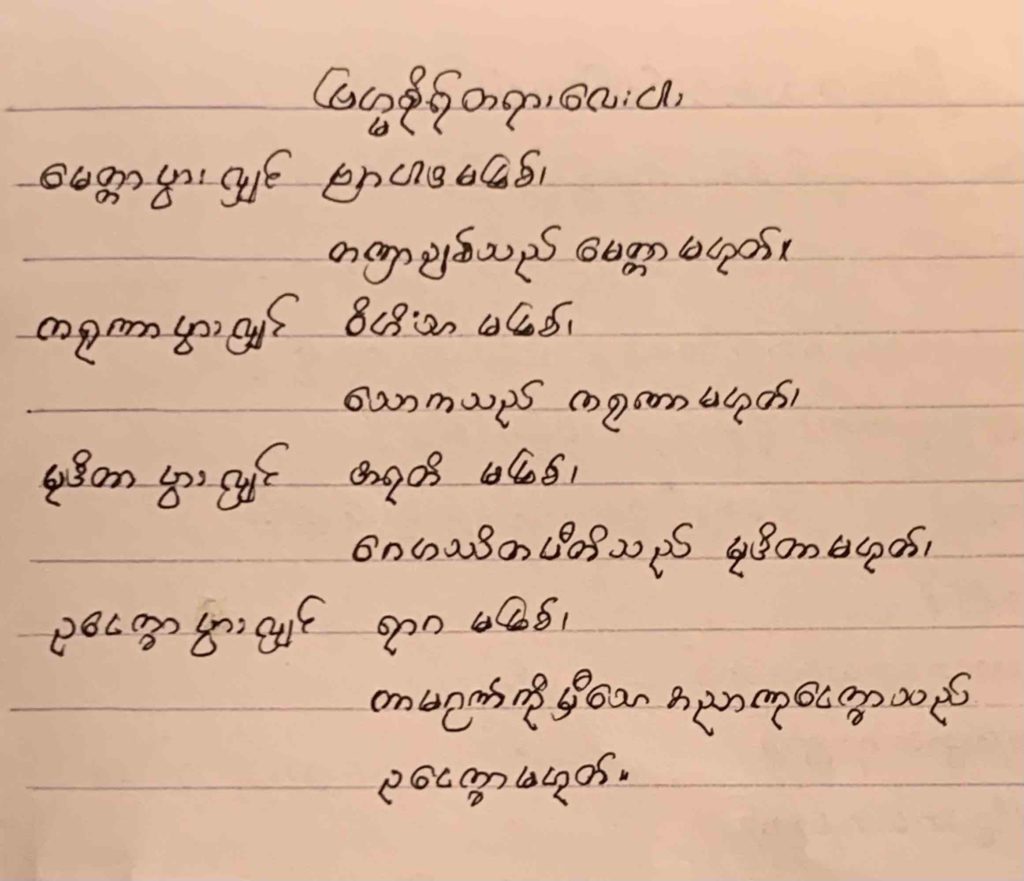 ဗြဟ္မစိုရ်တရားလေးပါး
မေတ္တာပွားလျှင် ဗျာပါဒ မဖြစ်၊
တဏှာချစ်သည် မေတ္တာ မဟုတ်။
ကရုဏာ ပွားလျှင် ဝိဟိံသာ မဖြစ်၊
သောကသည် ကရုဏာ မဟုတ်၊
မုဒိတာ ပွားလျှင် အရတိ မဖြစ်၊
ဂေဟသိတပီတိသည် မုဒိတာမဟုတ်၊
ဥပေက္ခာ ပွားလျှင် ရာဂ မဖြစ်၊
ကာမဂုဏ်ကိုမှီသော အညာဏုပေက္ခာသည်
ဥပေက္ခာမဟုတ်။